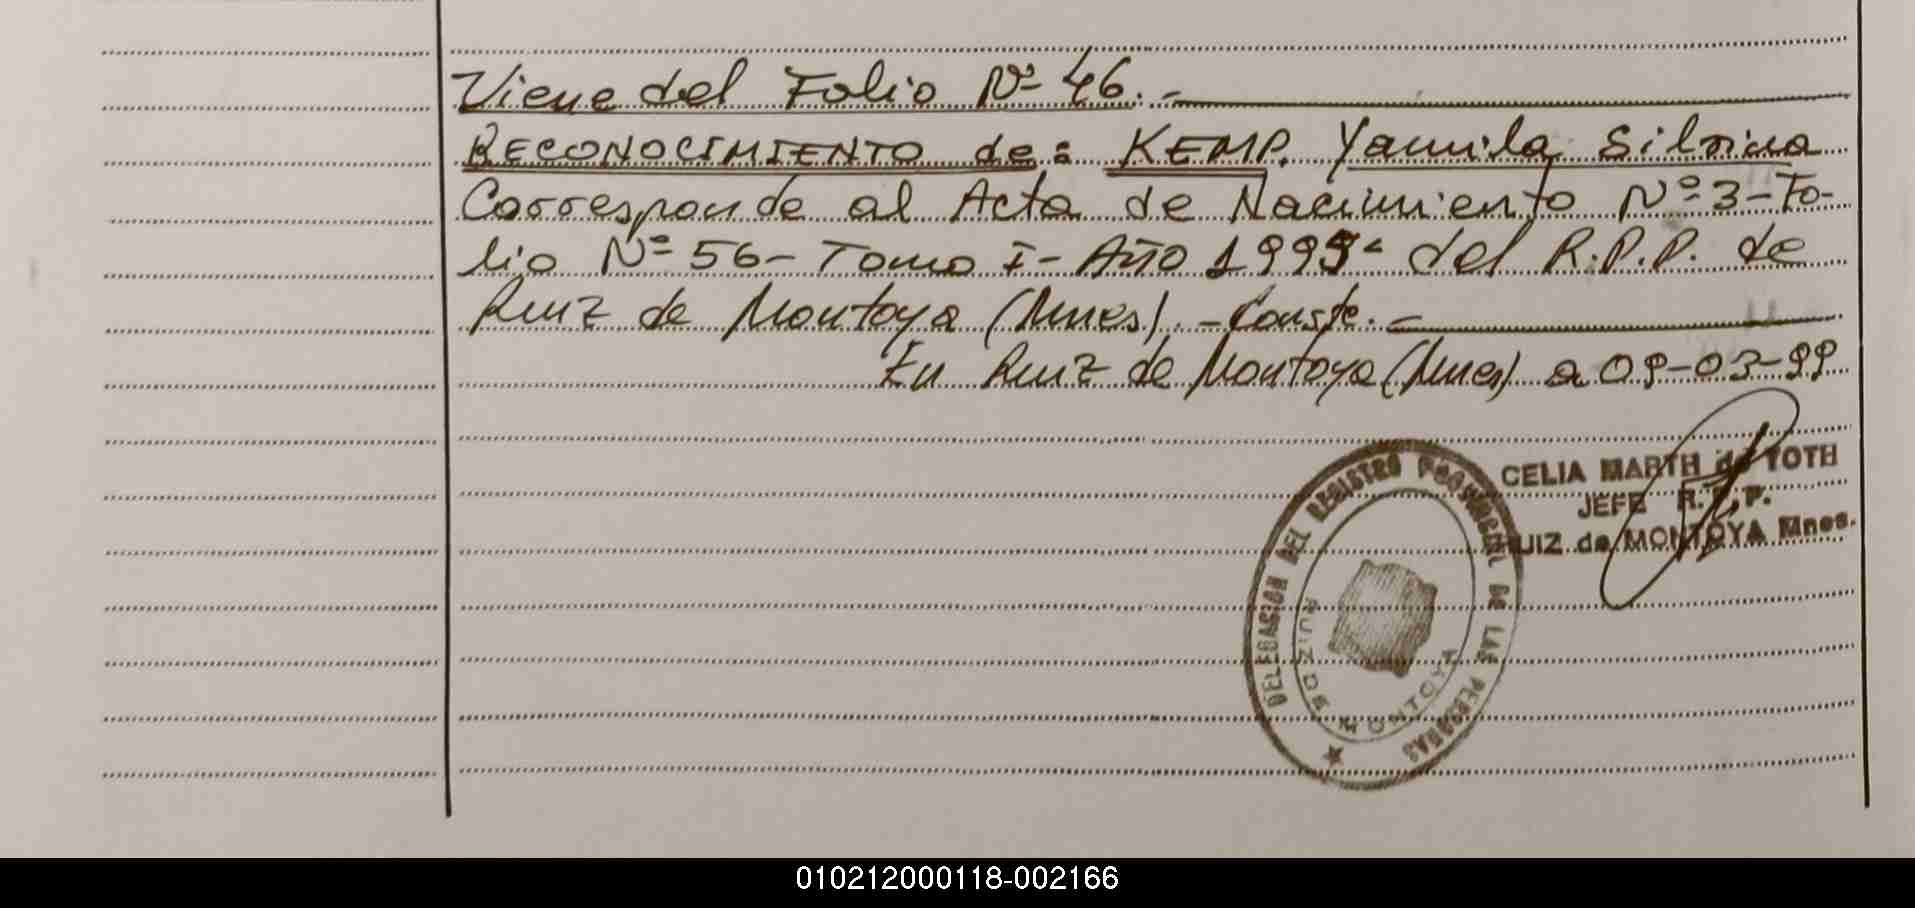 Viene del Folio Nº 46.-
RECONOCIMIENTO de: KEMP. Yamila Silvina
Corresponde al Acta de Nacimiento Nº 3-Fo-
lio Nº 56- Tomo I- Año 1995- del R.P.P. de
Ruiz de Montoya (Mnes). -Conste.-
En Ruiz de Montoya (Mnes) a 09-03-99
CELIA MARTH de TOTH
JEFE R.P.P.
RUIZ de MONTOYA Mnes.
DELEGACION DEL REGISTRO PROVINCIAL DE LAS PERSONAS
RUIZ DE MONTOYA
010212000118-002166